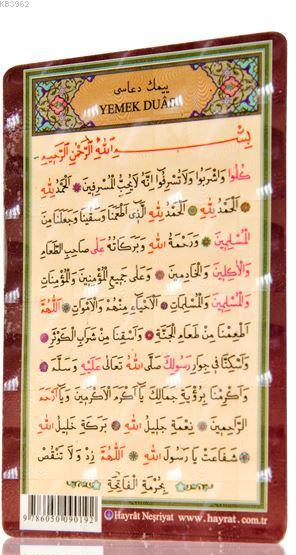 KB3962
ييمك دعاسى
YEMEK DUÂSI
بِسْمِ اللهِ الرَّحْمٰنِ الرَّحِيمِ
كُلُوا وَاشْرَبُوا وَلَا تُسْرِفُوا اِنَّهُ لَا يُحِبُّ الْمُسْرِفِينَ ❁ اَلْحَمْدُ لِلّٰهِ
اَلْحَمْدُ لِلّٰهِ ❁ اَلْحَمْدُ لِلّٰهِ الَّذِى اَطْعَمَنَا وَسَقٰينَا وَجَعَلَنَا مِنَ
الْمُسْلِمِينَ ❁ وَرَحْمَةُ اللهِ وَبَرَكَاتُهُ عَلٰى صَاحِبِ الطَّعَامِ
وَالْاٰكِلِينَ وَالْخَادِمِينَ ❁ وَعَلٰى جَمِيعِ الْمُؤْمِنِينَ وَالْمُؤْمِنَاتِ
وَالْمُسْلِمِينَ وَالْمُسْلِمَاتِ ❁ اَلْاَحْيَاءِ مِنْهُمْ وَالْاَمْوَاتِ ❁ اَللّٰهُمَّ
اَطْعِمْنَا مِنْ طَعَامِ الْجَنَّةِ ❁ وَاَسْقِنَا مِنْ شَرَابِ الْكَوْثَرِ ❁
وَاَسْكِنَّا فِى جِوَارِ رَسُولِكَ صَلَّى اللهُ تَعَالٰى عَلَيْهِ وَسَلَّمَ ❁
وَاَكْرِمْنَا بِرُؤْيَةِ جَمَالِكَ يَا اَكْرَمَ الْاَكْرَمِينَ وَيَا اَرْحَمَ
الرَّاحِمِينَ ❁ نِعْمَةُ جَلِيلُ اللهِ ❁ بَرَكَةِ خَلِيلُ اللهِ
❁ شَفَاعَتْ يَا رَسُولَ اللهِ ❁ اَللّٰهُمَّ زِدْ وَلَا تَنْقُصْ
بِحُرْمَةِ الْفَاتِحَةِ
9 786050 090192
Hayrât Neşriyat www.hayrat.com.tr